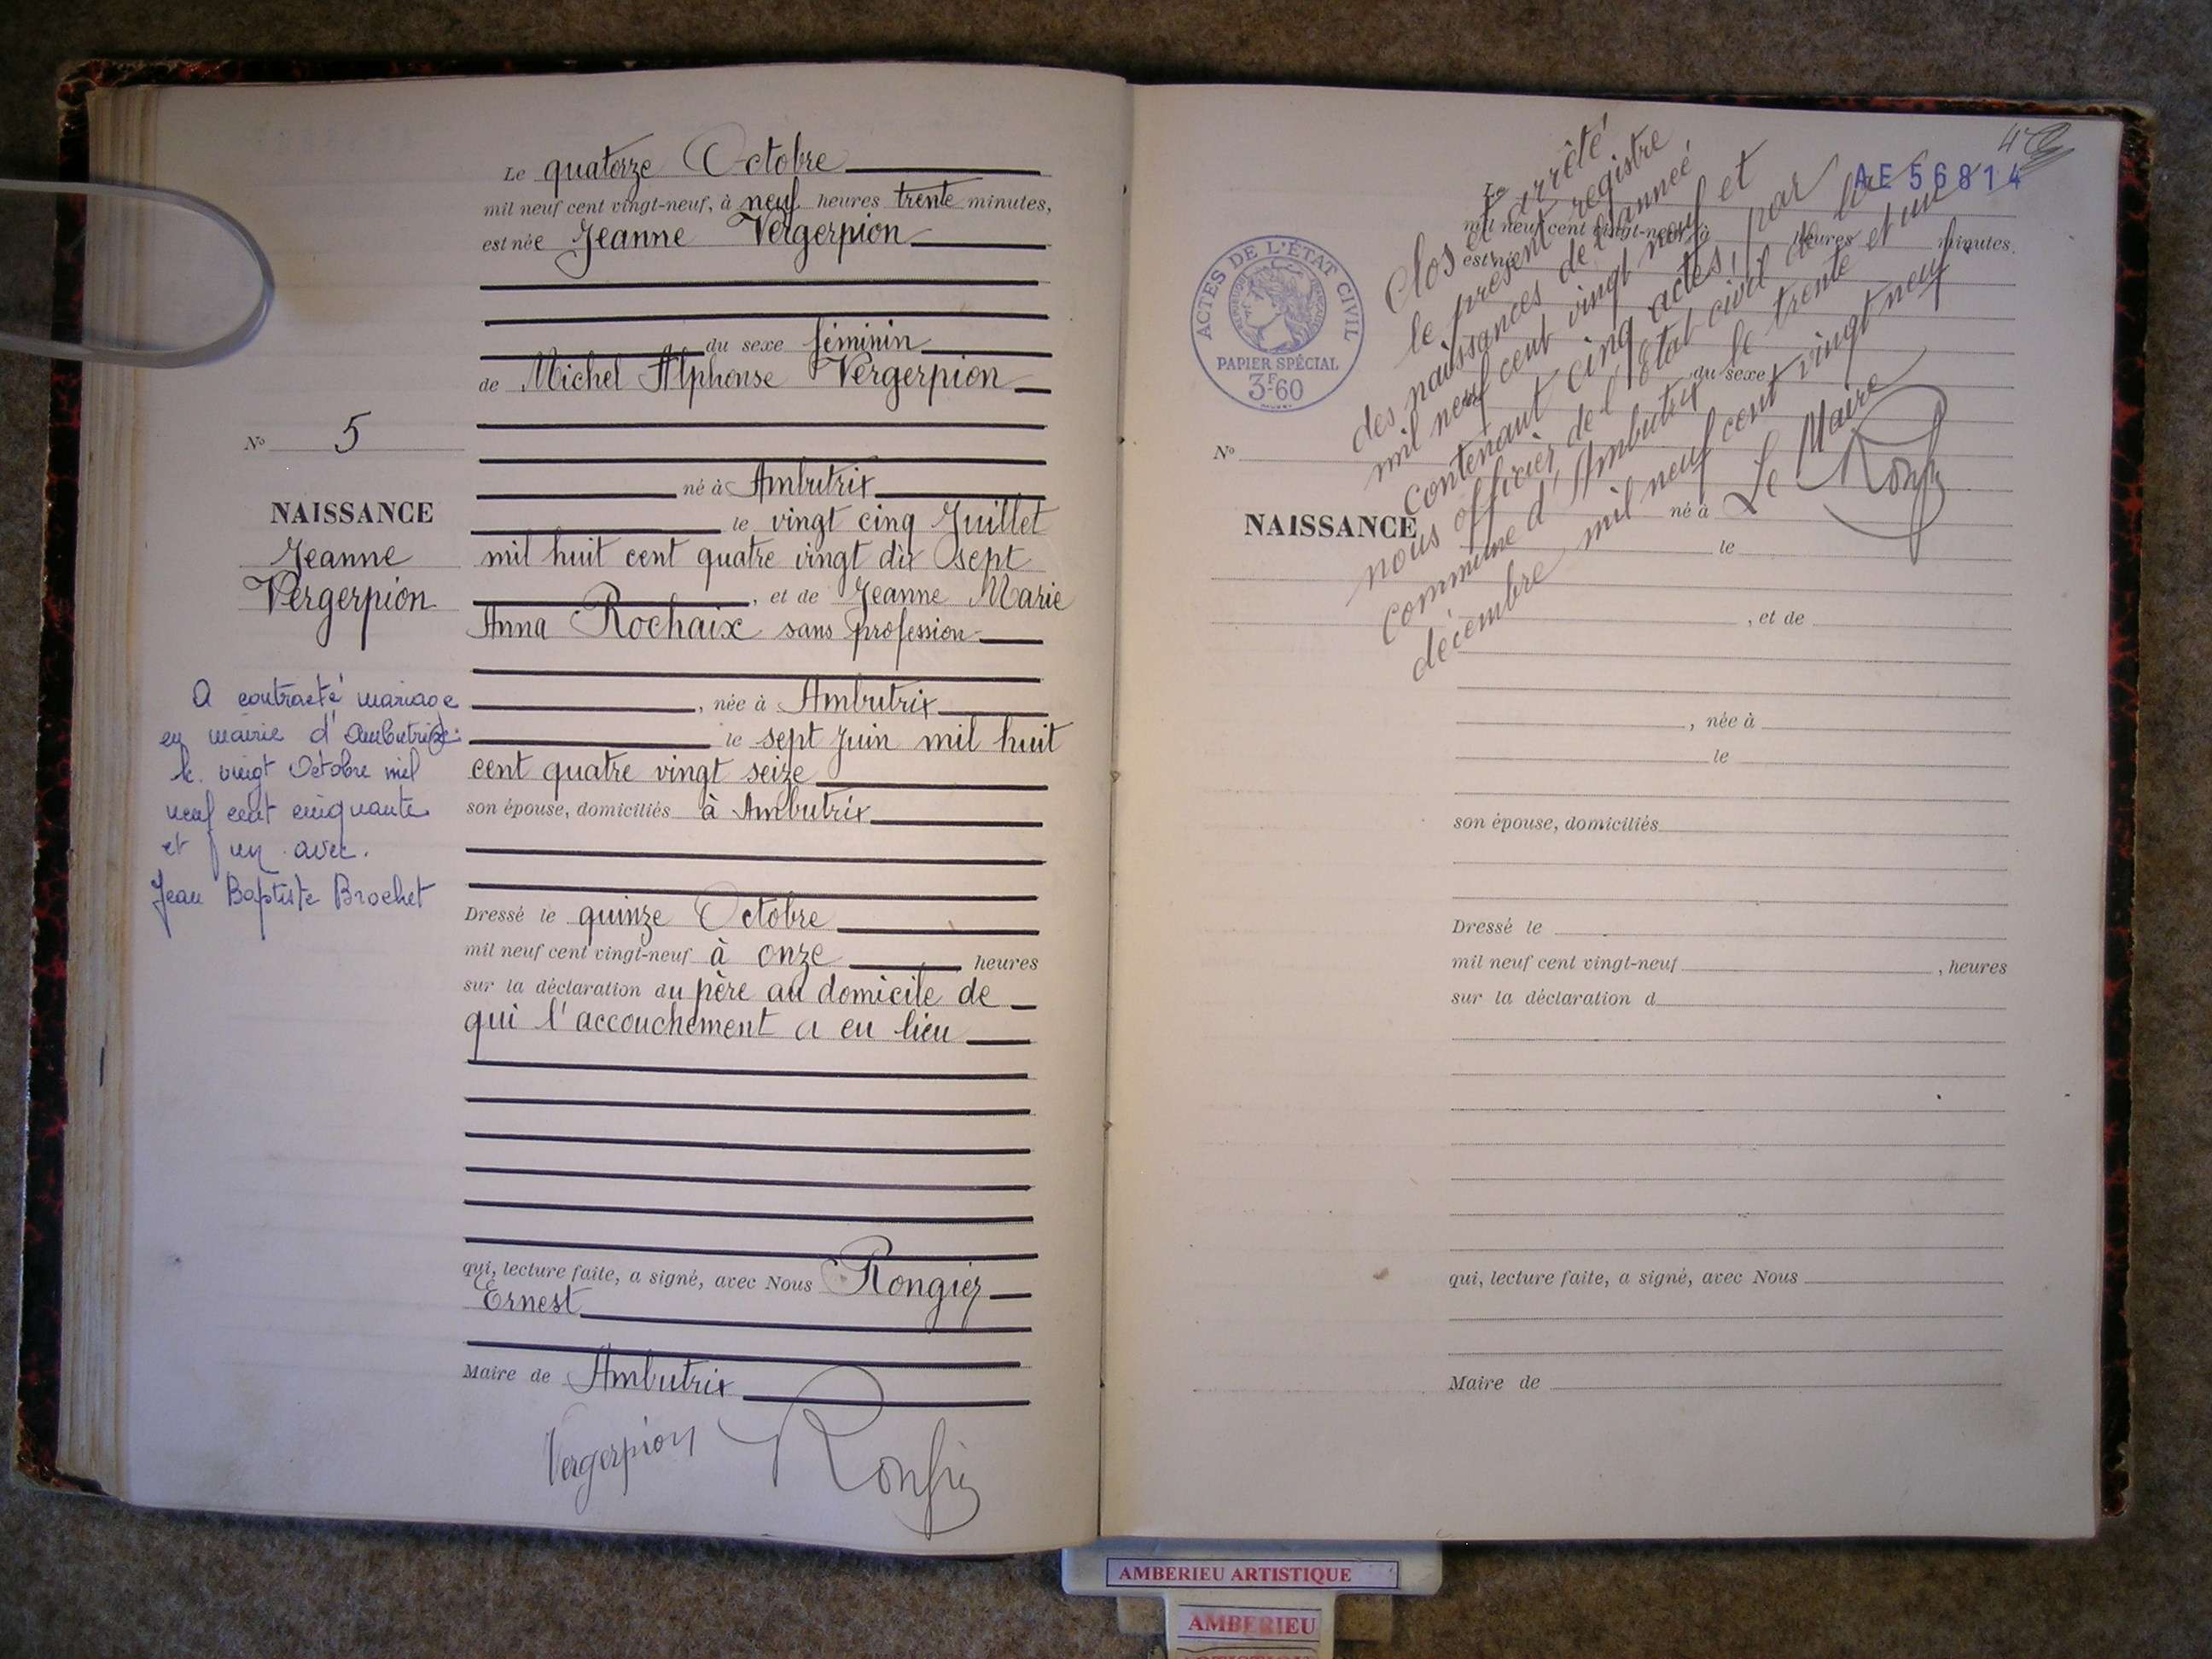 Le quatorze Octobre
mil neuf cent vingt-neuf, à neuf heures trente minutes,
est née Jeanne Vergerpion
du sexe féminin
de Michel Alphonse Vergerpion
né à Ambutrix
le vingt cinq Juillet
mil huit cent quatre vingt dix sept
, et de Jeanne Marie
Anna Rochaix sans profession
, née à Ambutrix
le sept Juin mil huit
cent quatre vingt seize
son épouse, domiciliés à Ambutrix
Dressé le quinze Octobre
mil neuf cent vingt-neuf à onze heures
sur la déclaration du père au domicile de
qui l'accouchement a eu lieu
qui, lecture faite, a signé, avec Nous Rongier
Ernest
Maire de Ambutrix
Vergerpion
No 5
NAISSANCE
Jeanne
Vergerpion
A contracté mariage
en mairie d'Ambutrix
le vingt Octobre mil
neuf cent cinquante
et un avec
Jean Baptiste Brochet
AE 56814
ACTES DE L'ÉTAT CIVIL
PAPIER SPÉCIAL
3F60
Clos et arrêté
le présent registre
des naissances de l'année
mil neuf cent vingt neuf et
contenant cinq actes, par
nous officier de l'état civil de la
commune d'Ambutrix le trente et un
décembre mil neuf cent vingt neuf
Le Maire
Le
mil neuf cent vingt-neuf, à heures minutes,
est né
du sexe
No
NAISSANCE
né à
le
, et de
, née à
le
son épouse, domiciliés
Dressé le
mil neuf cent vingt-neuf , heures
sur la déclaration d
qui, lecture faite, a signé, avec Nous
Maire de
AMBERIEU ARTISTIQUE
AMBERIEU